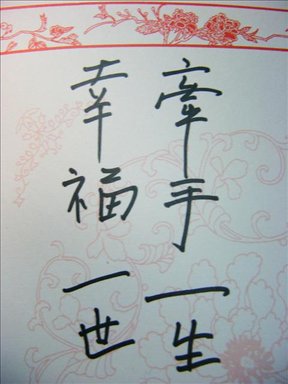 牽手一生
幸福一世